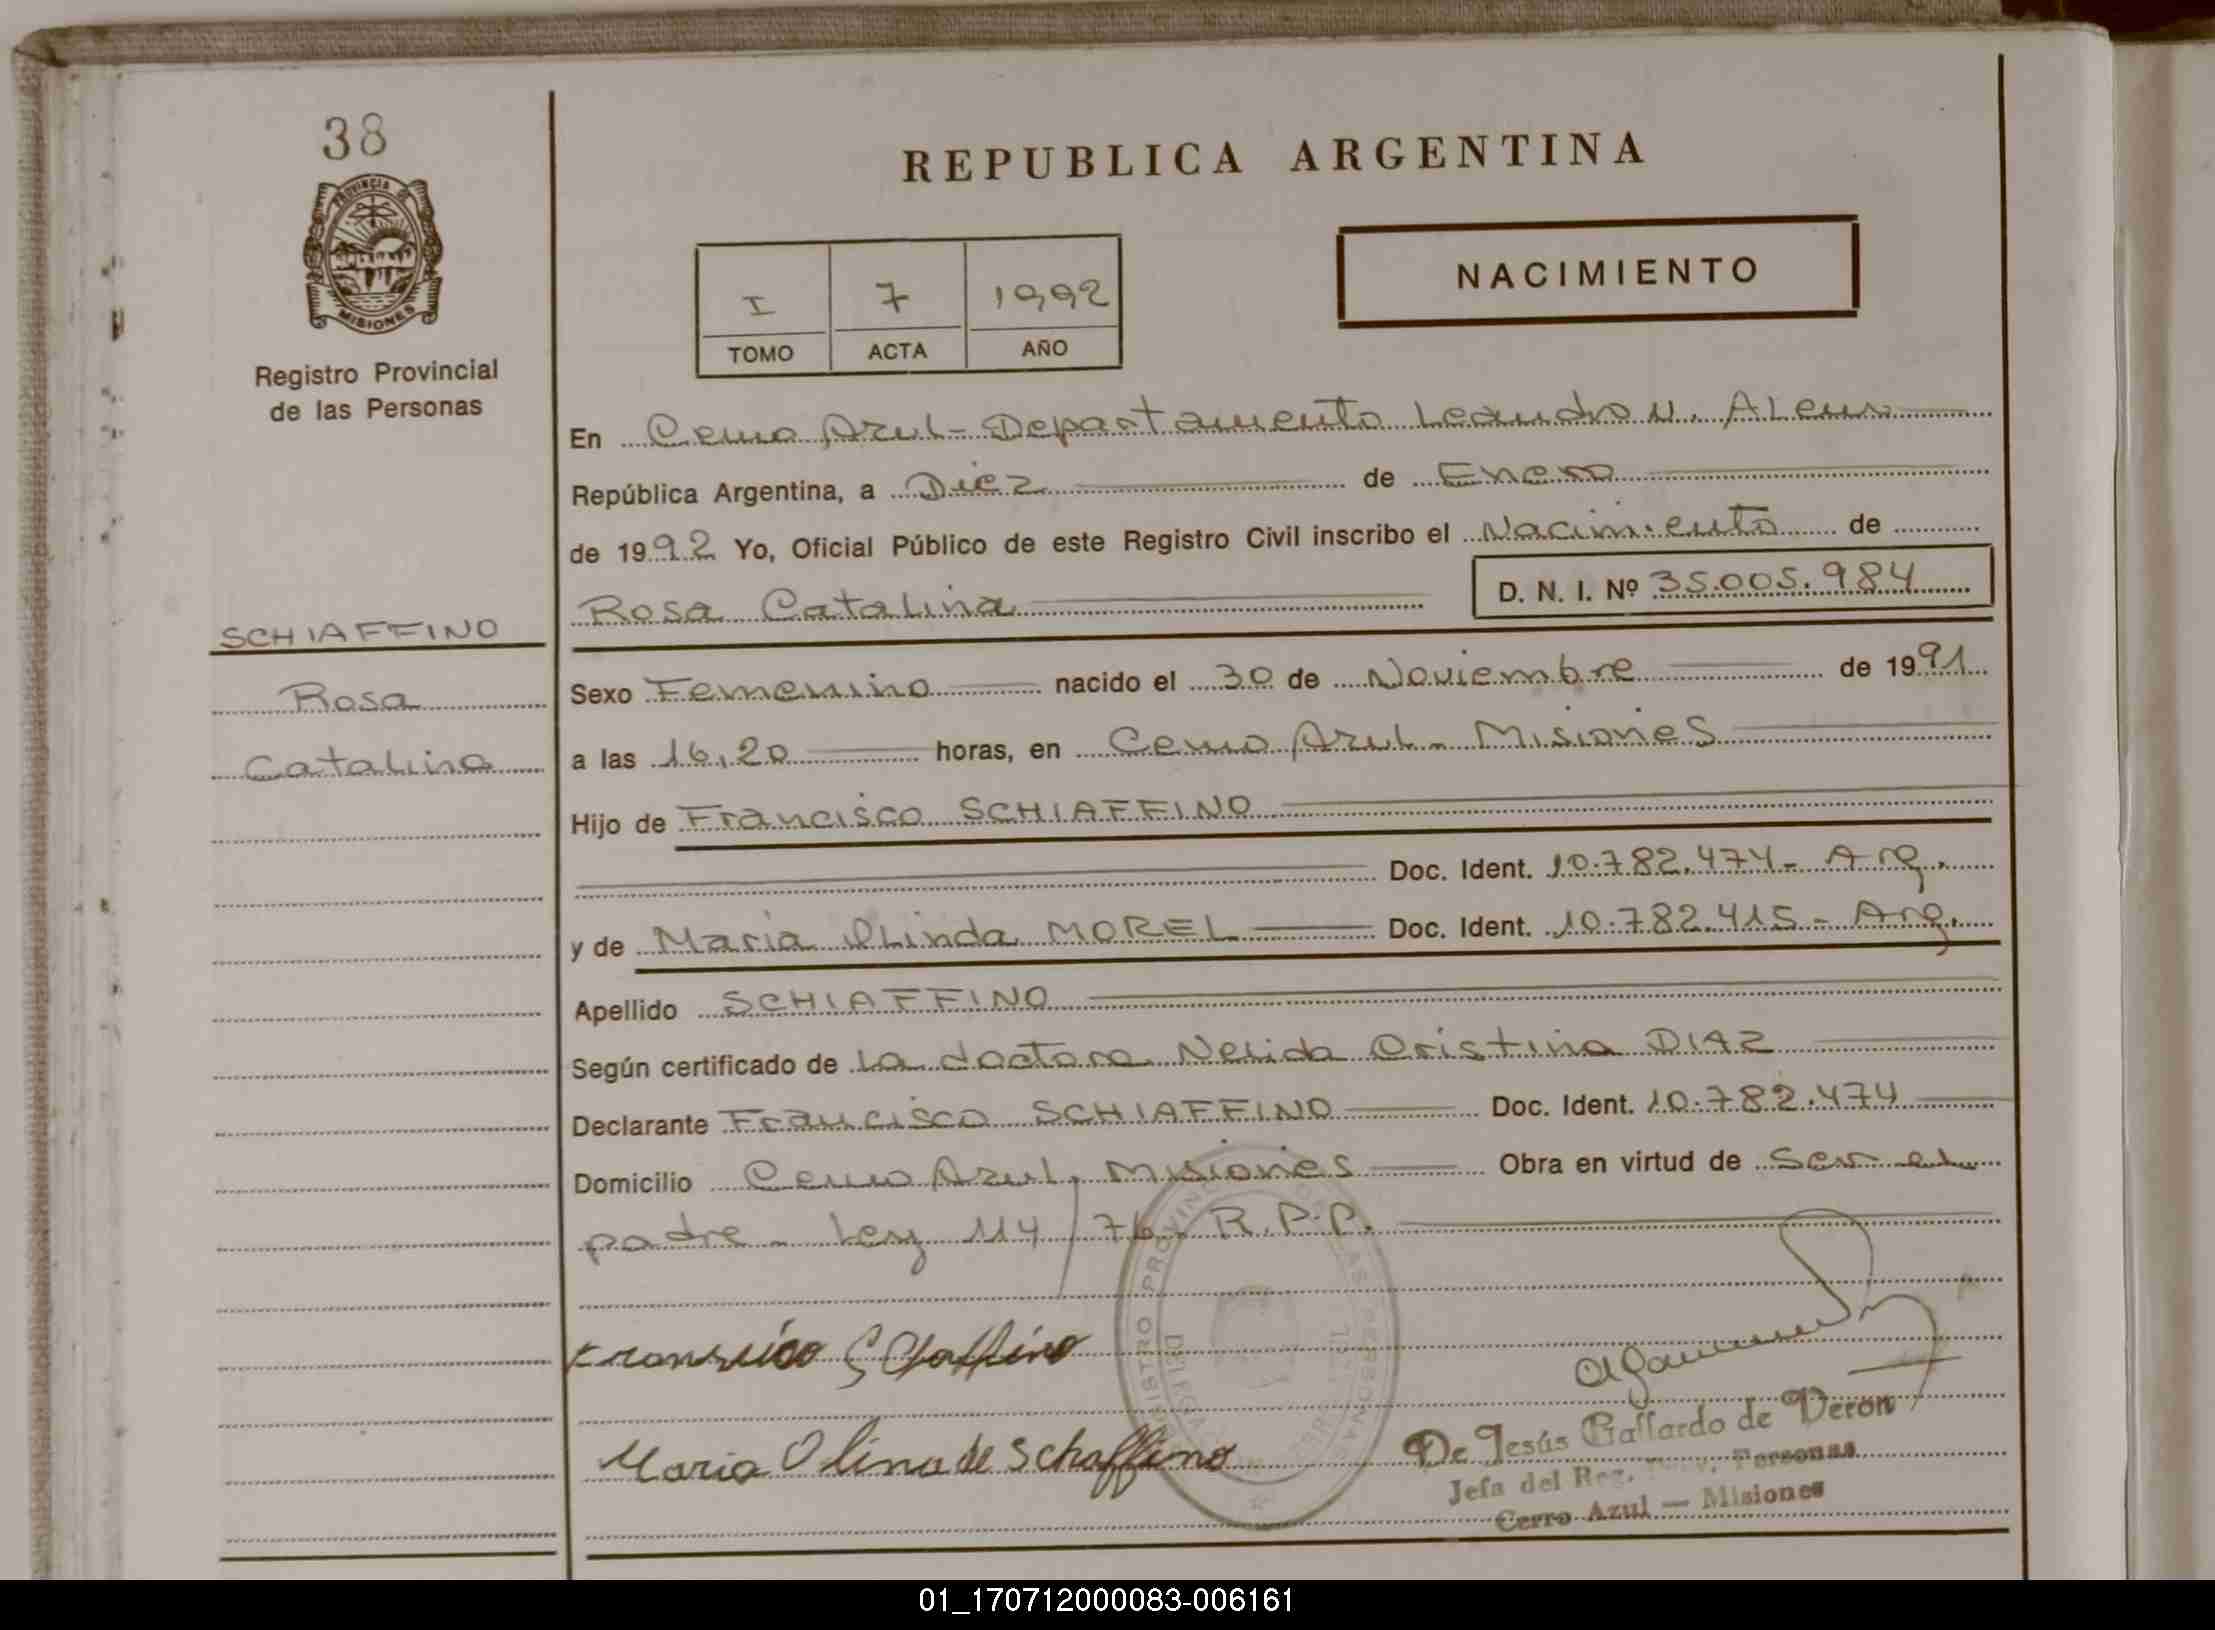 38
PROVINCIA DE
MISIONES
Registro Provincial
de las Personas
SCHIAFFINO
Rosa
Catalina
REPUBLICA ARGENTINA
I 7 1992
TOMO ACTA AÑO
NACIMIENTO
En Cerro Azul - Departamento Leandro N. Alem
República Argentina, a Diez de Enero
de 1992 Yo, Oficial Público de este Registro Civil inscribo el Nacimiento de
Rosa Catalina D. N. I. Nº 35.005.984
Sexo Femenino nacido el 30 de Noviembre de 1991
a las 16,20 horas, en Cerro Azul - Misiones
Hijo de Francisco SCHIAFFINO
Doc. Ident. 10.782.474 - Arg.
y de Maria Olinda MOREL Doc. Ident. 10.782.415 - Arg.
Apellido SCHIAFFINO
Según certificado de la doctora Nelida Cristina DIAZ
Declarante Francisco SCHIAFFINO Doc. Ident. 10.782.474
Domicilio Cerro Azul, Misiones Obra en virtud de Ser el
padre - Ley 114/76 R.P.P.
Maria Olinda de Schaffino
De Jesús Gallardo de Verón
Jefa del Reg. Prov. Personas
Cerro Azul — Misiones
01_170712000083-006161